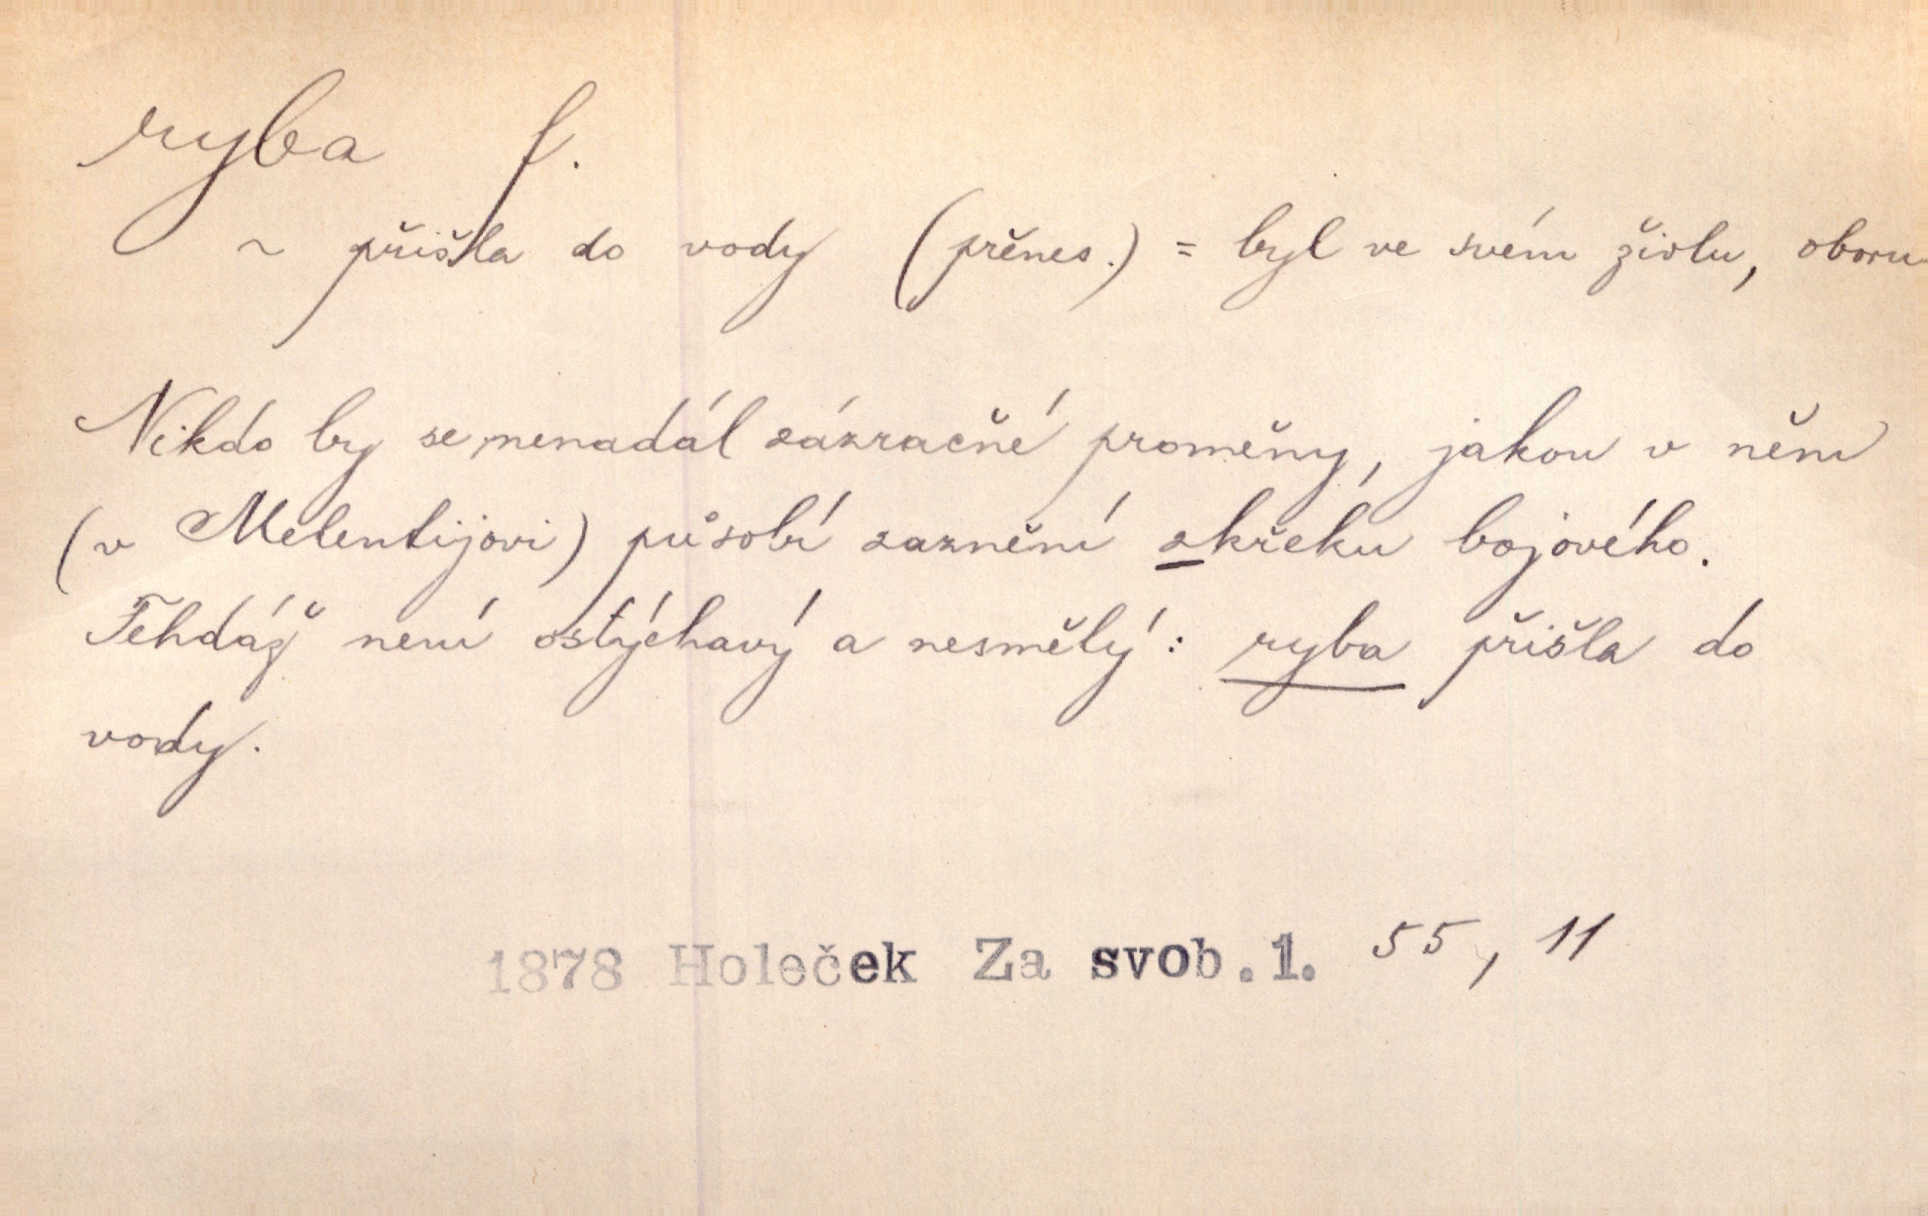 ryba f.
~ přišla do vody (přenes.) = byl ve svém živlu, oboru
Nikdo by se nenadál zázračné proměny, jakou v něm
(v Melentijovi) působí zaznění zkřeku bojového.
Tehdáž není ostýchavý a nesmělý: ryba přišla do
vody.
1878 Holeček Za svob.1. 55, 11